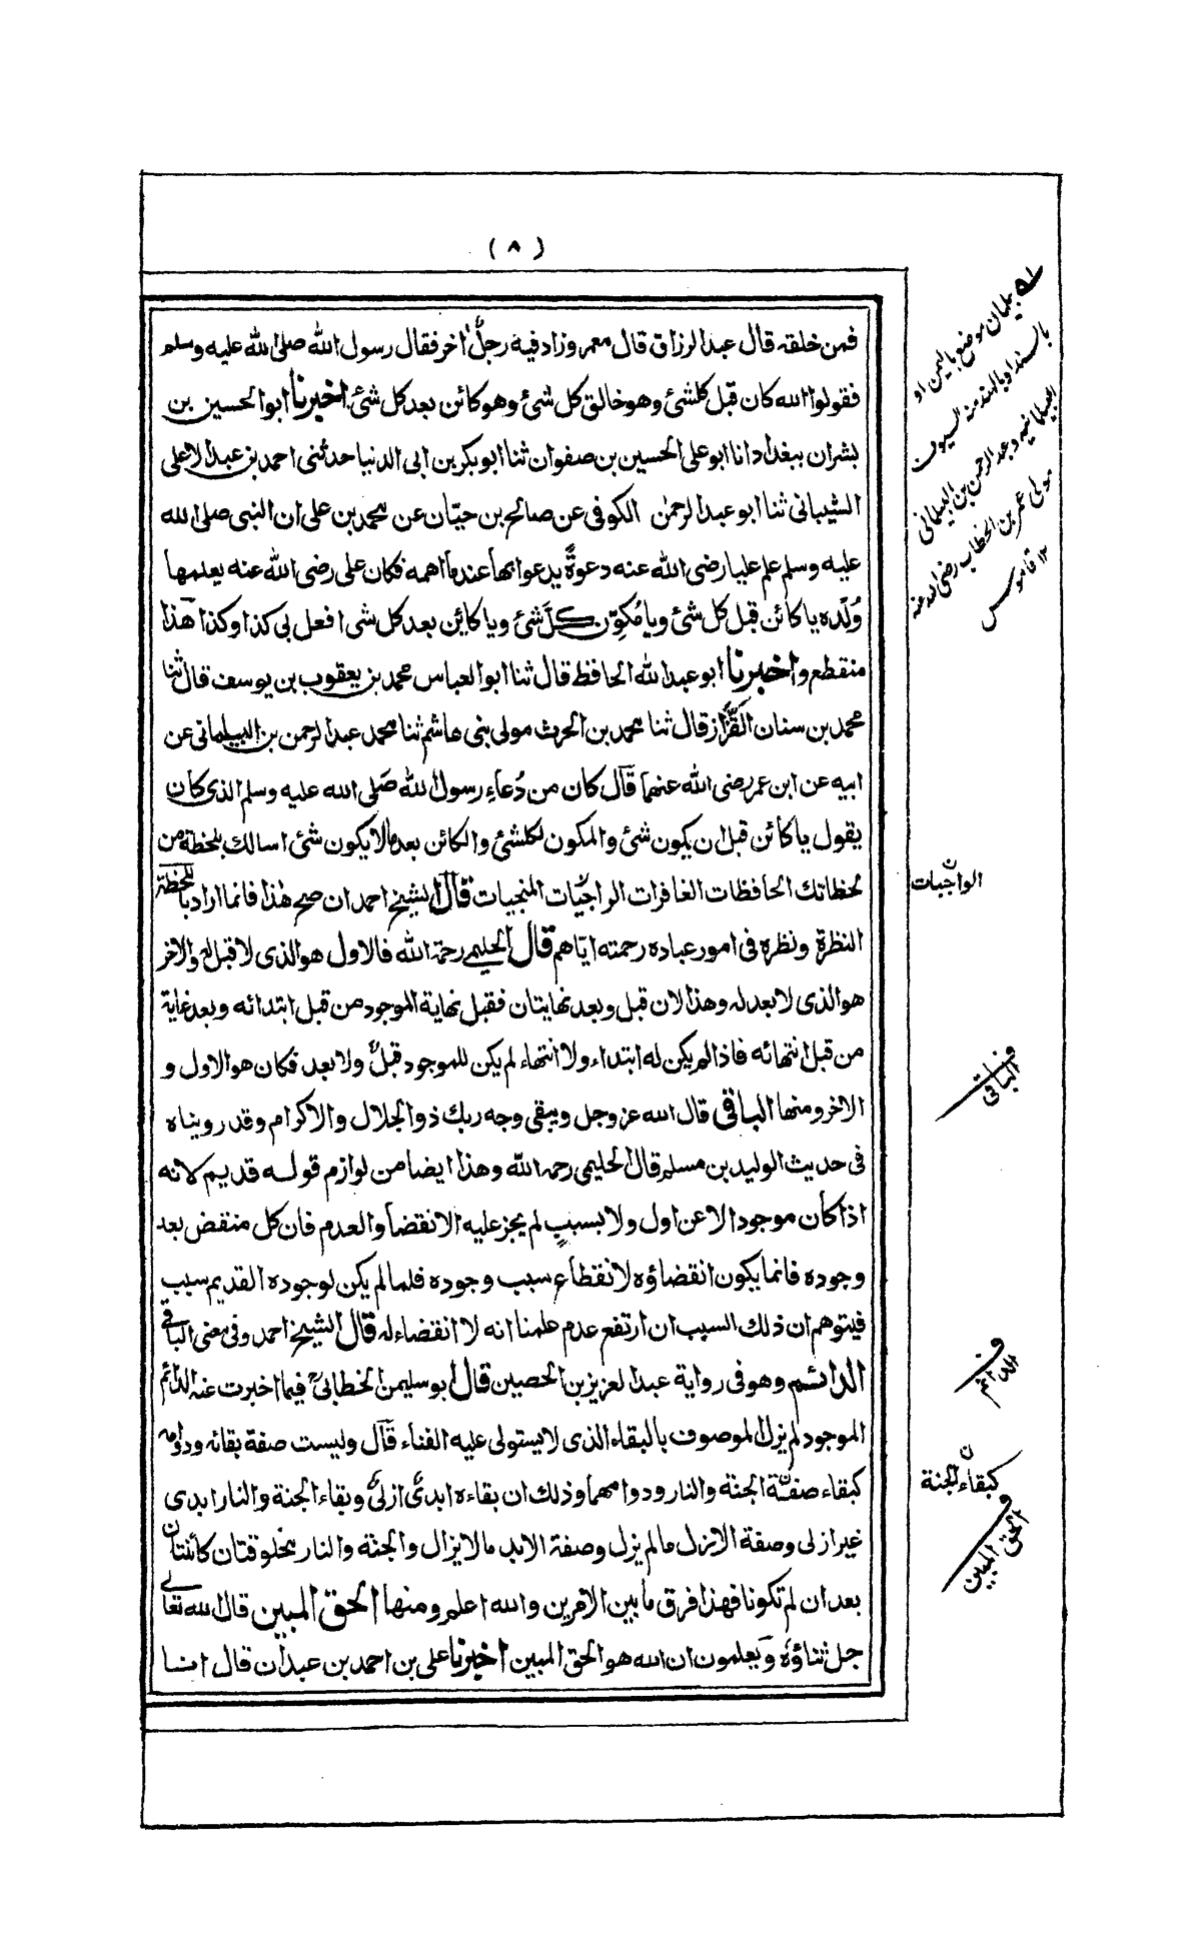 (٨)
فمن خلقه قال عبد الرزاق قال معمر وزاد فيه رجلٌ اخر فقال رسول الله صلى الله عليه وسلم
فقولوا الله كان قبل كلشئ وهو خالق كل شئ وهو كائن بعد كل شئ اخبرنا ابو الحسين بن
بشران ببغداد انا ابو على الحسين بن صفوان ثنا ابو بكر بن ابى الدنيا حدثنى احمد بن عبد الاعلى
الشيبانى ثنا ابو عبد الرحمن الكوفى عن صالح بن حيّان عن محمد بن على ان النبى صلى الله
عليه وسلم علم عليا رضى الله عنه دعوةً يدعوا بها عندما اهمه فكان على رضى الله عنه يعلمها
وُلده يا كائن قبل كل شئ ويا مُكوّن كل شئ ويا كائن بعد كل شى افعل بى كذا وكذا هذا
منقطع واخبرنا ابو عبد الله الحافظ قال ثنا ابو العباس محمد بن يعقوب بن يوسف قال ثنا
محمد بن سنان القَّزاز قال ثنا محمد بن الحرث مولى بنى هاشم ثنا محمد عبد الرحمن بن البيلمانى عن
ابيه عن ابن عمر رضى الله عنهما قال كان من دُعاءِ رسول الله صَلى الله عليه وسلم الذى كان
يقول يا كائن قبل ان يكون شئ والمكون لكلشئ والكائن بعد مالا يكون شئ اسالك بلحظة من
لحظاتك الحافظات الغافرات الراجيات المنجيات قال الشيخ احمد ان صح هذا فانما اراد باللحظة
النظرة ونظره فى امور عباده رحمته اياهم قال الحليمى رحمة الله فالاول هو الذى لا قبل له والاخر
هو الذى لا بعد له وهذا لان قبل وبعد نهايتان فقبل نهاية الموجود من قبل ابتدائه وبعد غاية
من قبل انتهائه فاذا لم يكن له ابتداء ولا انتهاء لم يكن للموجود قبلٌ ولا بعد فكان هو الاول و
الاخر ومنها الباقى قال الله عز وجل ويبقى وجه ربك ذو الجلال والاكرام وقد رويناه
فى حديث الوليد بن مسلم قال الحليمى رحمه الله وهذا ايضا من لوازم قوله قديم لانه
اذا كان موجودا لا عن اول ولا بسببٍ لم يجز عليه الانقضاء والعدم فان كل منقض بعد
وجوده فانما يكون انقضاؤه لانقطاع سبب وجوده فلما لم يكن لوجوده القديم سبب
فيتوهم ان ذلك السبب ان ارتفع عدم علمنا انه لا انقضاء له قال الشيخ احمد وفى معنى الباقى
الدائم وهو فى رواية عبد العزيز بن الحصين قال ابو سليمن الخطابى فيما اخبرت عنه الدائم
الموجود لم يزل الموصوف بالبقاء الذى لا يستولى عليه الفناء قال وليست صفة بقائه ودوامه
كبقاء صفة الجنة والنار ودوامهما وذلك ان بقاءه ابدىٌ ازلىٌ وبقاء الجنة والنار ابدى
غير ازلى وصفة الازل ما لم يزل وصفة الابد ما لا يزال والجنة والنار مخلوقتان كائنتان
بعد ان لم تكونا فهذا فرق ما بين الامرين والله اعلم ومنها الحق المبين قال الله تعالى
جل ثناؤه ويعلمون ان الله هو الحق المبين اخبرنا على بن احمد بن عبدان قال انبا
بيلمان موضع باليمن او
بالسند او بالهند منه السيوف
البيلمانية وعبد الرحمن بن البيلمانى
مولى عمر بن الخطاب رضى الله عنه
١٢ قاموس
ن
الواجبات
ف
الباقى
ف
الدائم
ن
كبقاء الجنة
ف
الحق المبين